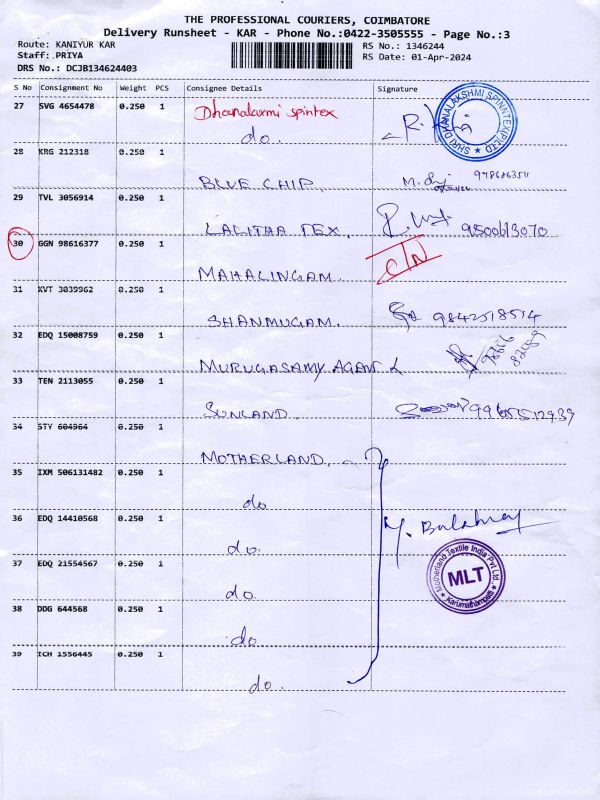 THE PROFESSIONAL COURIERS, COIMBATORE
Delivery Runsheet - KAR - Phone No.:0422-3505555 - Page No.:3
Route: KANIYUR KAR RS No.: 1346244
Staff: PRIYA RS Date: 01-Apr-2024
DRS No.: DCJB134624403
S No Consignment No Weight PCS Consignee Details Signature
27 SVG 4654478 0.250 1 Dhanalaxmi spintex
do.
SHRI DHANALAKSHMI SPINNTEX(P)LTD
28 KRG 212318 0.250 1
BLUE CHIP.
29 TVL 3056914 0.250 1
LALITHA TEX. 9500613070
30 GGN 98616377 0.250 1
MAHALINGAM
31 KVT 3039962 0.250 1
SHANMUGAM. 9842518514
32 EDQ 15008759 0.250 1
MURUGASAMY
33 TEN 2113055 0.250 1
SUNLAND
34 STY 604964 0.250 1
MOTHERLAND.
35 IXM 506131482 0.250 1
do
36 EDQ 14410568 0.250 1
do.
37 EDQ 21554567 0.250 1
do.
Motherland Textile India Pvt Ltd.,
MLT
Karumathampatti
38 DDG 644568 0.250 1
do
39 ICH 1556445 0.250 1
do.